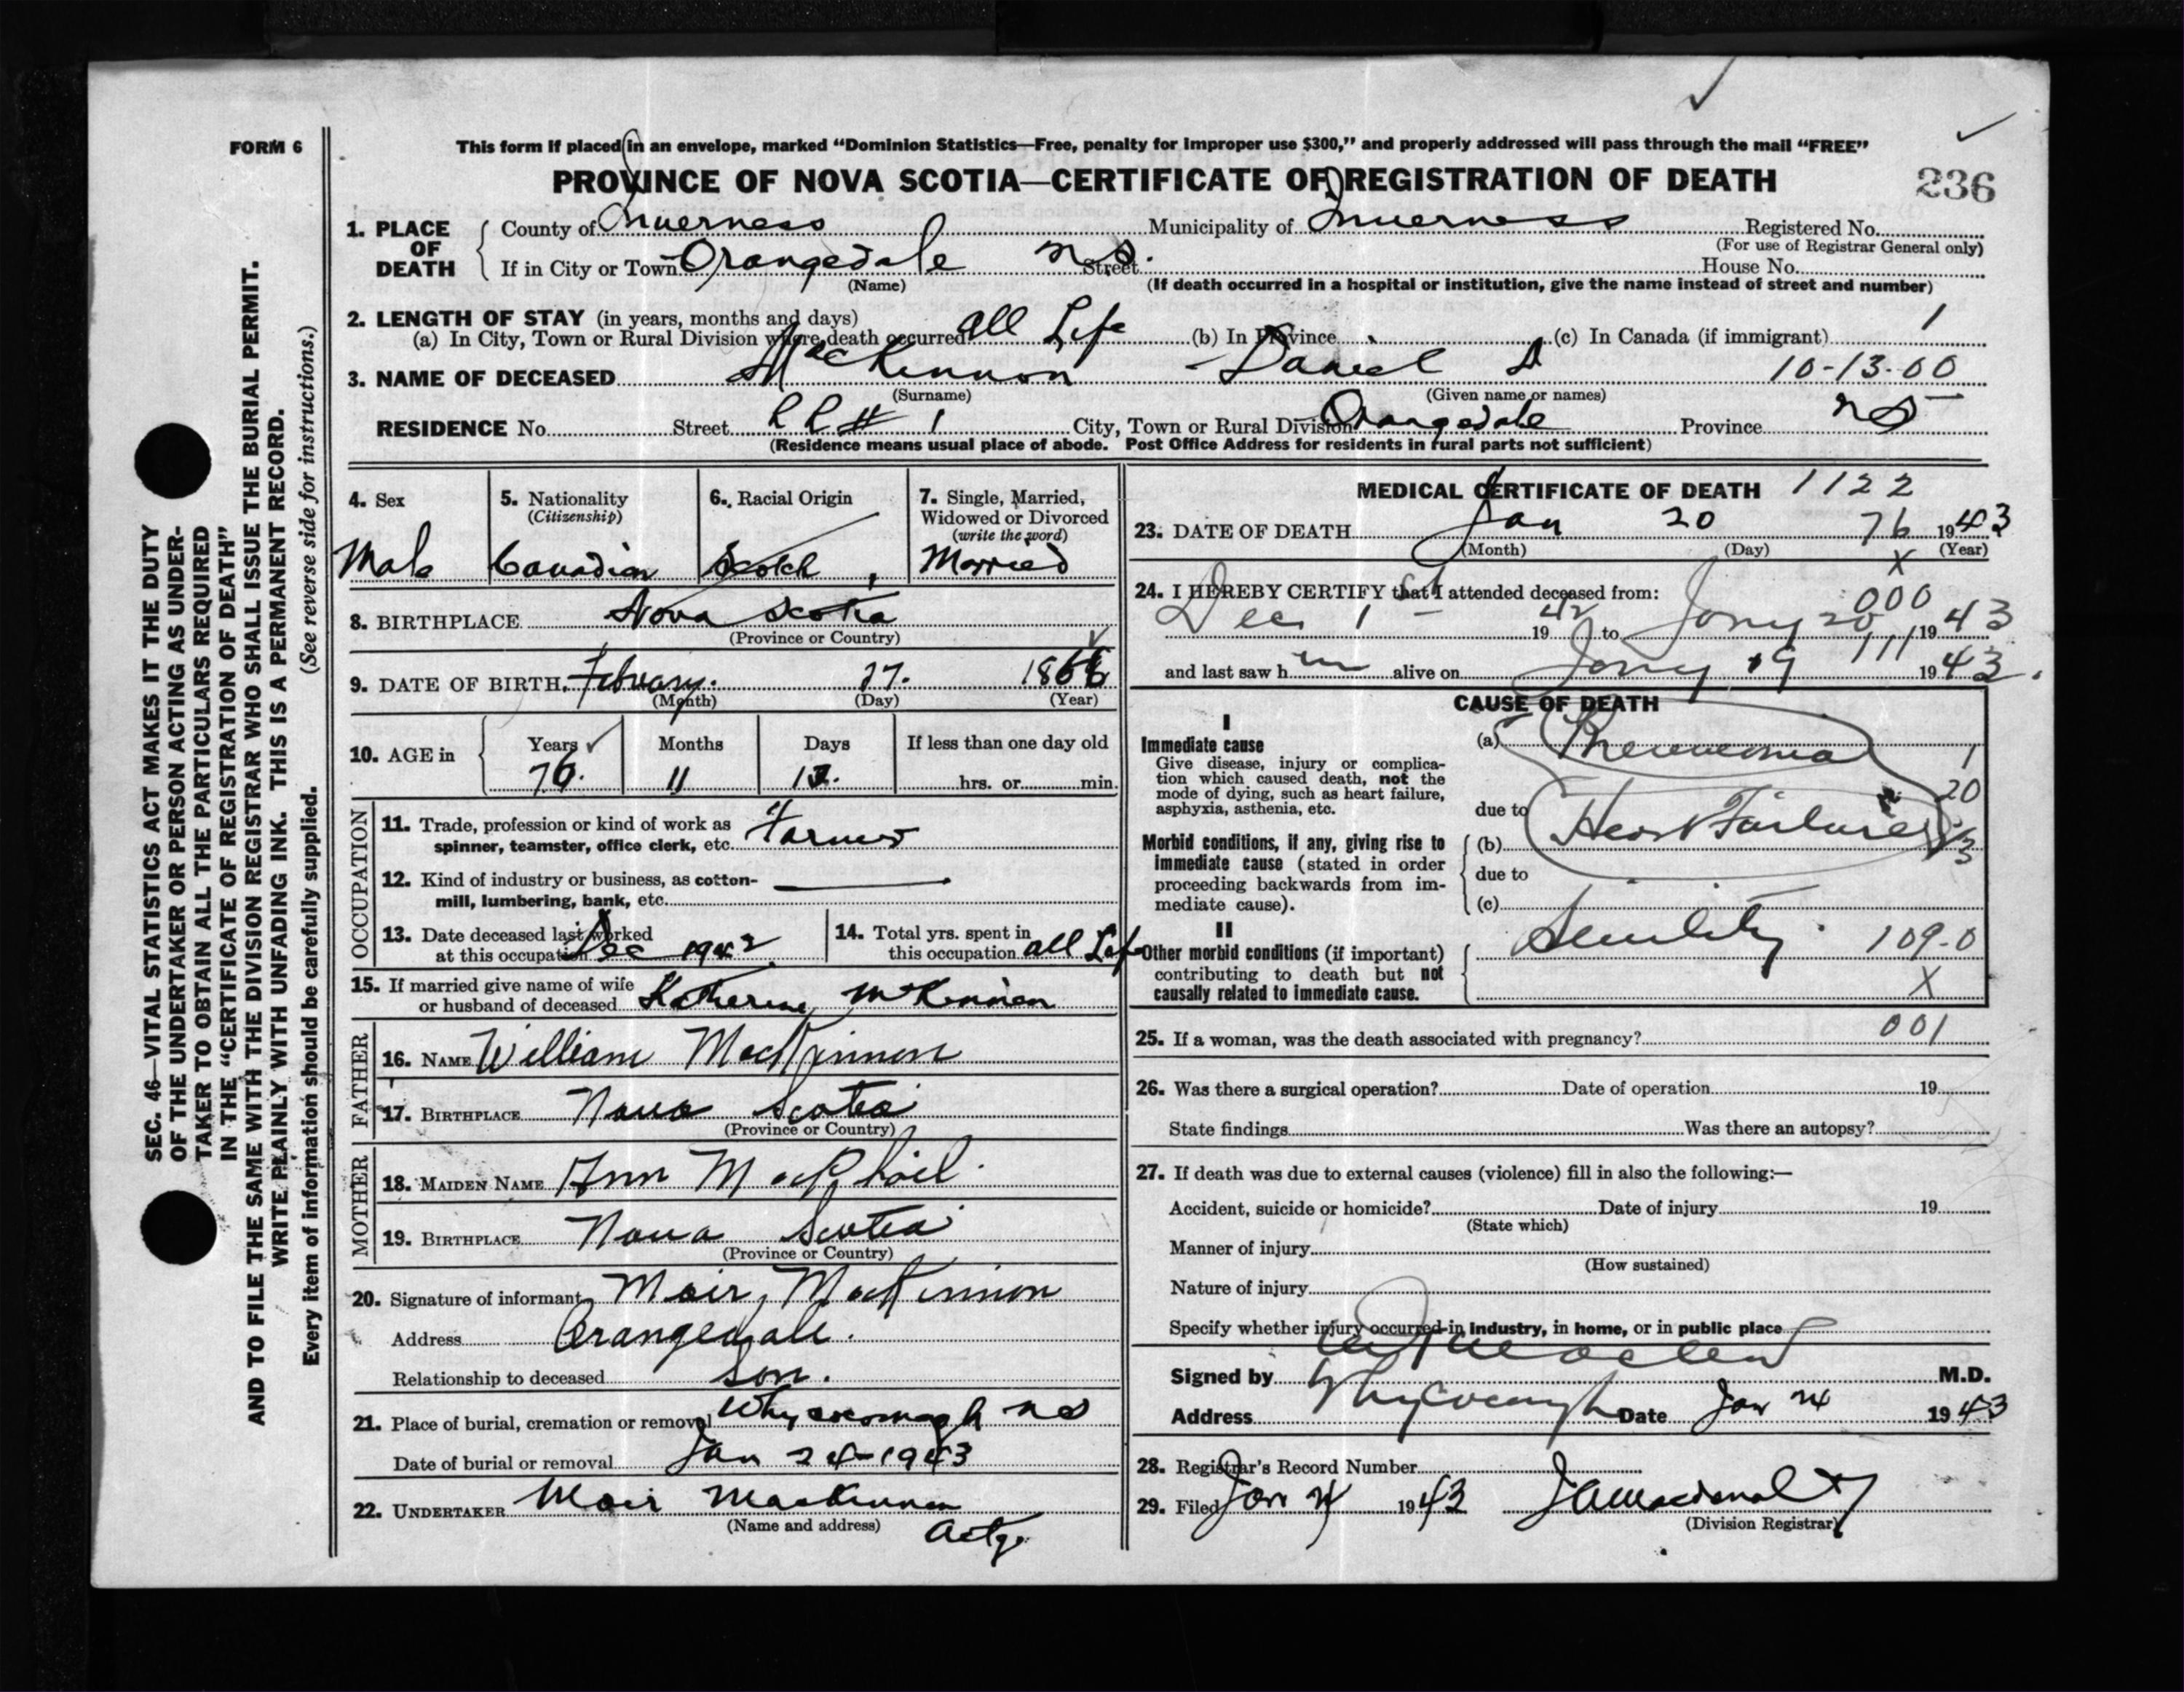 FORM 6
This form if placed in an envelope, marked “Dominion Statistics—Free, penalty for improper use $300,” and properly addressed will pass through the mail “FREE”
PROVINCE OF NOVA SCOTIA—CERTIFICATE OF REGISTRATION OF DEATH
236
1. PLACE OF DEATH
County of Inverness Municipality of Inverness Registered No.
(For use of Registrar General only)
If in City or Town Orangedale N.S. Street House No.
(Name) (If death occurred in a hospital or institution, give the name instead of street and number)
2. LENGTH OF STAY (in years, months and days)
(a) In City, Town or Rural Division where death occurred all Life (b) In Province (c) In Canada (if immigrant) 1
3. NAME OF DECEASED MacKinnon Daniel D 10-13-00
(Surname) (Given name or names)
RESIDENCE No. Street R R # 1 City, Town or Rural Division Orangedale Province N S
(Residence means usual place of abode. Post Office Address for residents in rural parts not sufficient)
SEC. 46—VITAL STATISTICS ACT MAKES IT THE DUTY
OF THE UNDERTAKER OR PERSON ACTING AS UNDER-
TAKER TO OBTAIN ALL THE PARTICULARS REQUIRED
IN THE “CERTIFICATE OF REGISTRATION OF DEATH”
AND TO FILE THE SAME WITH THE DIVISION REGISTRAR WHO SHALL ISSUE THE BURIAL PERMIT.
WRITE PLAINLY WITH UNFADING INK. THIS IS A PERMANENT RECORD.
Every item of information should be carefully supplied. (See reverse side for instructions.)
4. Sex 5. Nationality 6. Racial Origin 7. Single, Married,
(Citizenship) Widowed or Divorced
(write the word)
Male Canadian Scotch Married
8. BIRTHPLACE Nova Scotia
(Province or Country)
9. DATE OF BIRTH February 27. 1866
(Month) (Day) (Year)
10. AGE in Years Months Days If less than one day old
76. 11 hrs. or min.
OCCUPATION
11. Trade, profession or kind of work as
spinner, teamster, office clerk, etc. Farmer
12. Kind of industry or business, as cotton-
mill, lumbering, bank, etc.
13. Date deceased last worked
at this occupation Dec 1942
14. Total yrs. spent in
this occupation all Life
15. If married give name of wife
or husband of deceased Katherine McKinnon
FATHER
16. NAME William MacKinnon
17. BIRTHPLACE Nova Scotia
(Province or Country)
MOTHER
18. MAIDEN NAME Ann MacPhail
19. BIRTHPLACE Nova Scotia
(Province or Country)
20. Signature of informant Moir MacKinnon
Address Orangedale.
Relationship to deceased son.
21. Place of burial, cremation or removal Whycocomagh N S
Date of burial or removal Jan 24-1943
22. UNDERTAKER Moir MacKinnon
(Name and address) Actg.
MEDICAL CERTIFICATE OF DEATH 1122
23. DATE OF DEATH Jan 20 76 1943
(Month) (Day) (Year)
X
24. I HEREBY CERTIFY that I attended deceased from: 000
Dec 1st 1942 to Jany 20 1943
111
and last saw him alive on Jany 19 1943.
CAUSE OF DEATH
I
Immediate cause
Give disease, injury or complica-
tion which caused death, not the
mode of dying, such as heart failure,
asphyxia, asthenia, etc.
(a) Pneumonia 1
due to 20
Morbid conditions, if any, giving rise to
immediate cause (stated in order
proceeding backwards from im-
mediate cause).
(b) Heart Failure
due to
(c)
II
Other morbid conditions (if important)
contributing to death but not
causally related to immediate cause.
Senility. 109-0
X
25. If a woman, was the death associated with pregnancy? 001
26. Was there a surgical operation? Date of operation 19
State findings Was there an autopsy?
27. If death was due to external causes (violence) fill in also the following:—
Accident, suicide or homicide? Date of injury 19
(State which)
Manner of injury
(How sustained)
Nature of injury
Specify whether injury occurred in industry, in home, or in public place
Signed by M.D.
Address Whycocomagh Date Jan 24 1943
28. Registrar's Record Number
29. Filed Jan 24 1943 J A Macdonald
(Division Registrar)